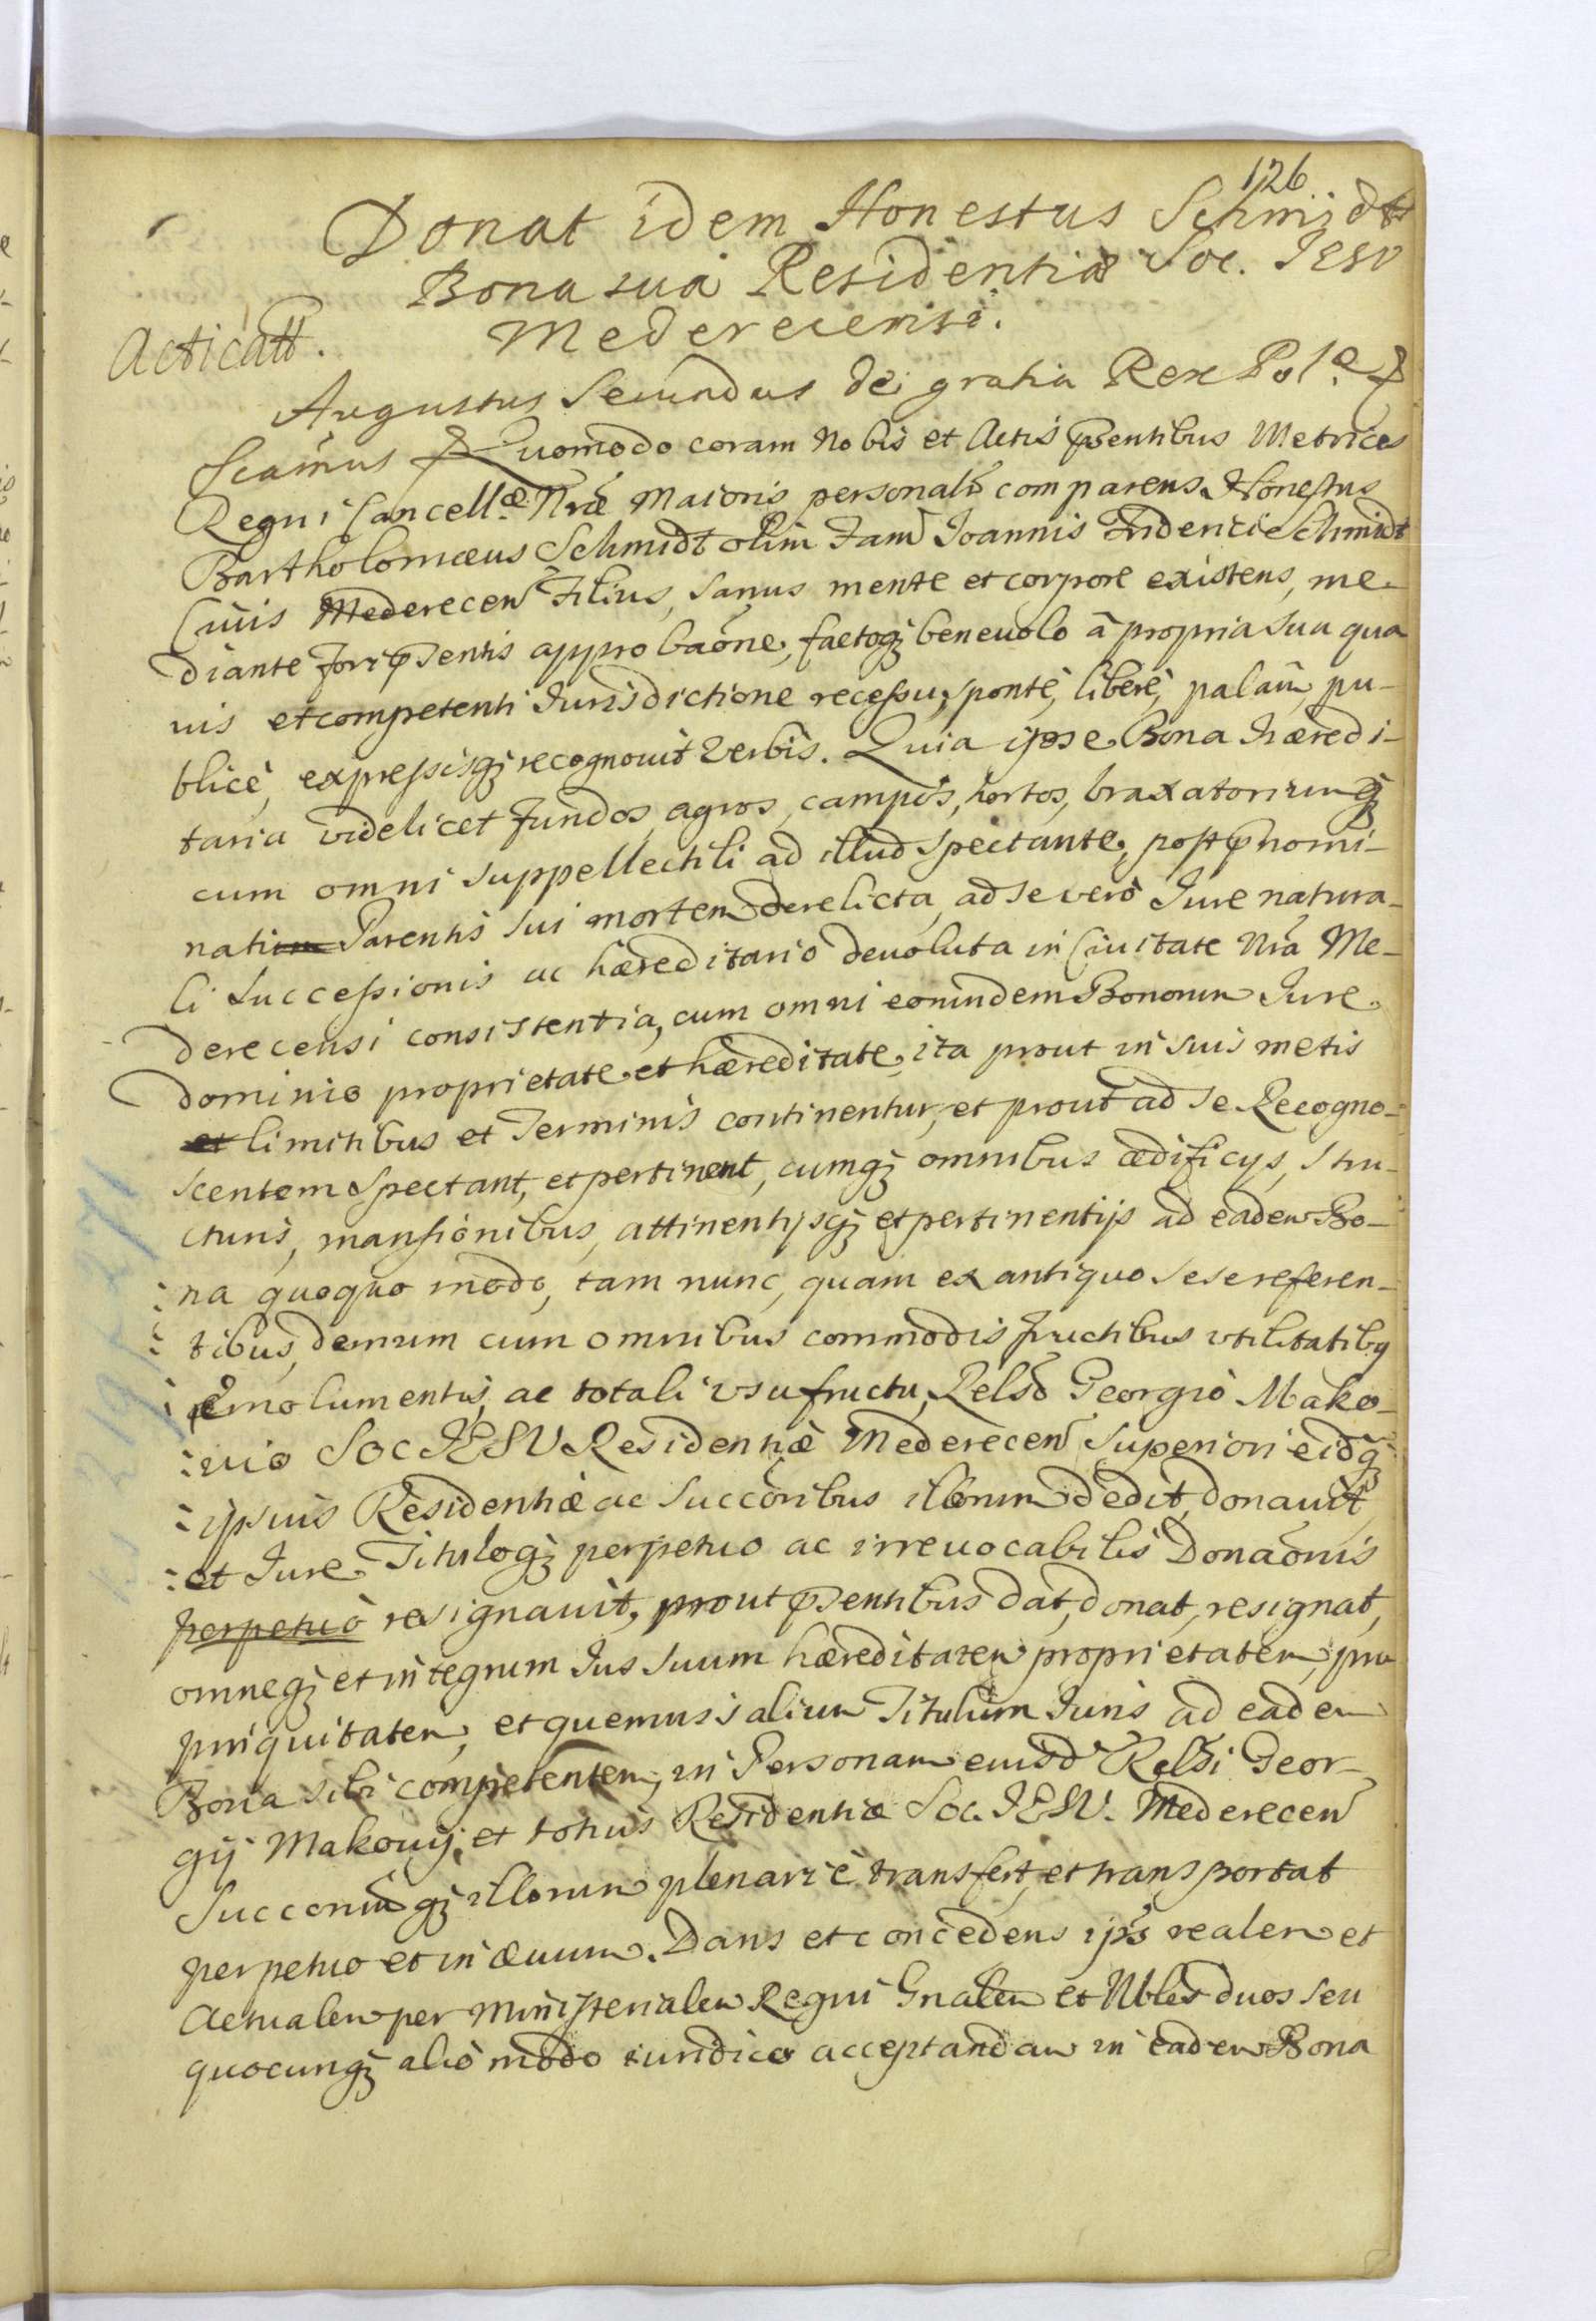 126
Donat idem Honestus Schmidt
Bona sua Residentiæ Soc. JESV
Mederecensi.
Acticatt.
Augustus Secundus Dei gratia Rex Pol.e &
Scimus & Quomodo coram Nobis et Actis p̄sentibus Metrices
Regni Cancell.æ N̄ræ Maioris personalr̄ comparens Honestus
Bartholomæus Schmidt olim Fam̄ Joannis Friderici Schmidt
Ciuis Mederecen̄ Filius, sanus mente et corpore existens, me-
diante fori p̄sentis approbaōne, factoq3 beneuolo à propria sua qua
uis et competenti Jurisdictione recessu, sponte, liberè, palam, pu-
blicè, expressisq3 recognouit Verbis. Quia ipse Bona hæredi-
taria videlicet fundos, agros, campos, hortos, braxatoriumq3
cum omni suppellectili ad illud spectante, post p̄nomi-
nati Parentis sui mortem derelicta, ad se verò Jure natura-
li Successionis ac hæreditario deuoluta in Ciuitate Nr̄a Me-
derecensi consistentia, cum omni eorundem Bonorum Jure
dominio proprietate et hæreditate, ita prout in suis metis
et limitibus et Terminis continentur, et prout ad se Recogno-
scentem spectant, et pertinent, cumq3 omnibus ædificys, stru-
cturis, mansionibus, attinentijsq3 et pertinentijs ad eadem Bo-
na quoquo modo, tam nunc, quam ex antiquo sese referen-
tibus, demum cum omnibus commodis fructibus vtilitatibq
emolumentis, ac totali vsufructu, Relsō Georgio Mako-
uio Soc JESU Residentiæ Mederecen̄ Superiori eidq3
ipsius Residentiæ ac Succōribus illorum dedit, donauit,
et Jure Tituloq3 perpetuo ac irreuocabilis Donaōnis
perpetuò resignauit, prout p̄sentibus dat, donat, resignat,
omneq3 et integrum Jus suum hæreditatem proprietatem, pro
pinquitatem, et quemuis alium Titulum Juris ad eadem
Bona sibi competentem, in Personam eiusd̄ Relsi Geor-
gij Makouij, et totius Residentiæ Soc. JESU. Mederecen̄
Succorum̄q3 illorum plenariè transfert, et transportat
perpetuo et in æuum. Dans et concedens ipīs realem et
Actualem per Ministerialem Regni Gnalem et Nbles duos seu
quocunq3 alio modo iuridico acceptandam in eadem Bona